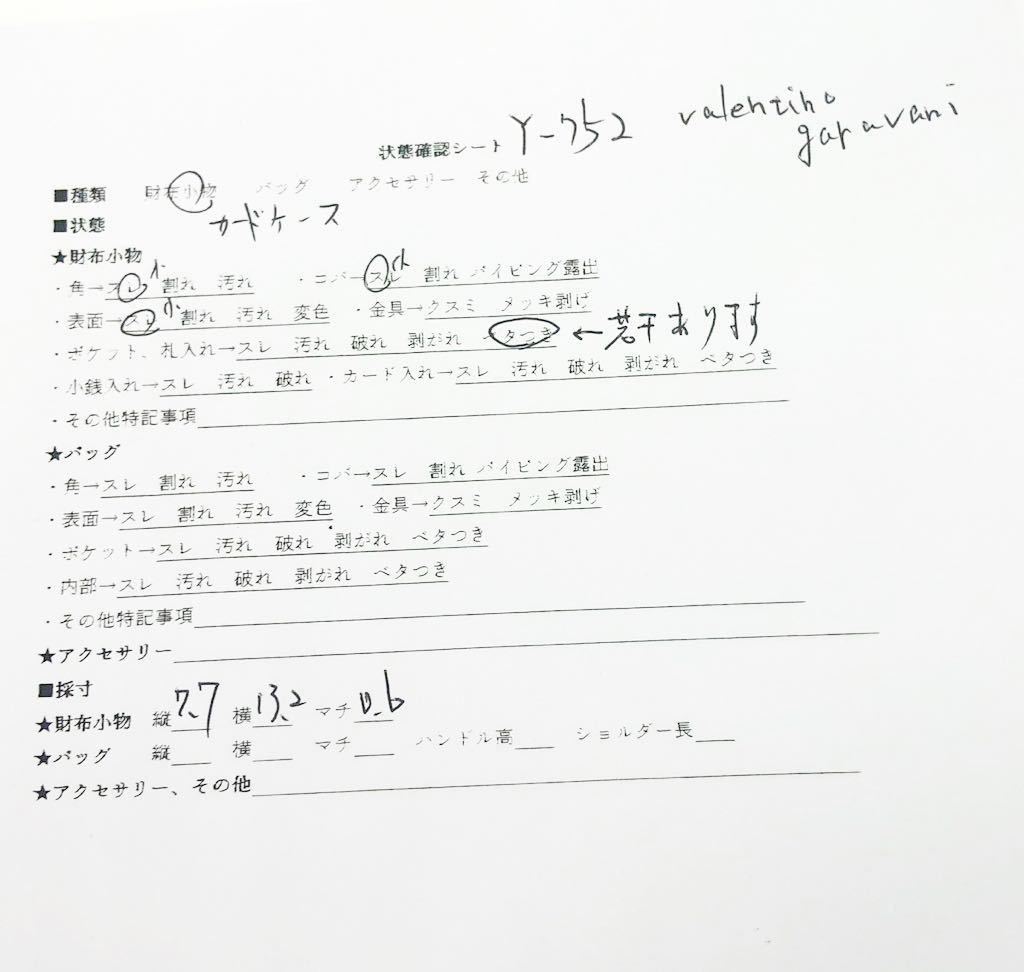 状態確認シート Y-752 valentino
garavani
■種類 財布小物 バッグ アクセサリー その他
■状態 カードケース
★財布小物
・角→スレ小 割れ 汚れ ・コバ→スレ小 割れ パイピング露出
・表面→スレ小 割れ 汚れ 変色 ・金具→クスミ メッキ剥げ
・ポケット、札入れ→スレ 汚れ 破れ 剥がれ ベタつき ←若干あります
・小銭入れ→スレ 汚れ 破れ ・カード入れ→スレ 汚れ 破れ 剥がれ ベタつき
・その他特記事項
★バッグ
・角→スレ 割れ 汚れ ・コバ→スレ 割れ パイピング露出
・表面→スレ 割れ 汚れ 変色 ・金具→クスミ メッキ剥げ
・ポケット→スレ 汚れ 破れ 剥がれ ベタつき
・内部→スレ 汚れ 破れ 剥がれ ベタつき
・その他特記事項
★アクセサリー
■採寸
★財布小物 縦7.7 横13.2 マチ0.6
★バッグ 縦 横 マチ ハンドル高 ショルダー長
★アクセサリー、その他